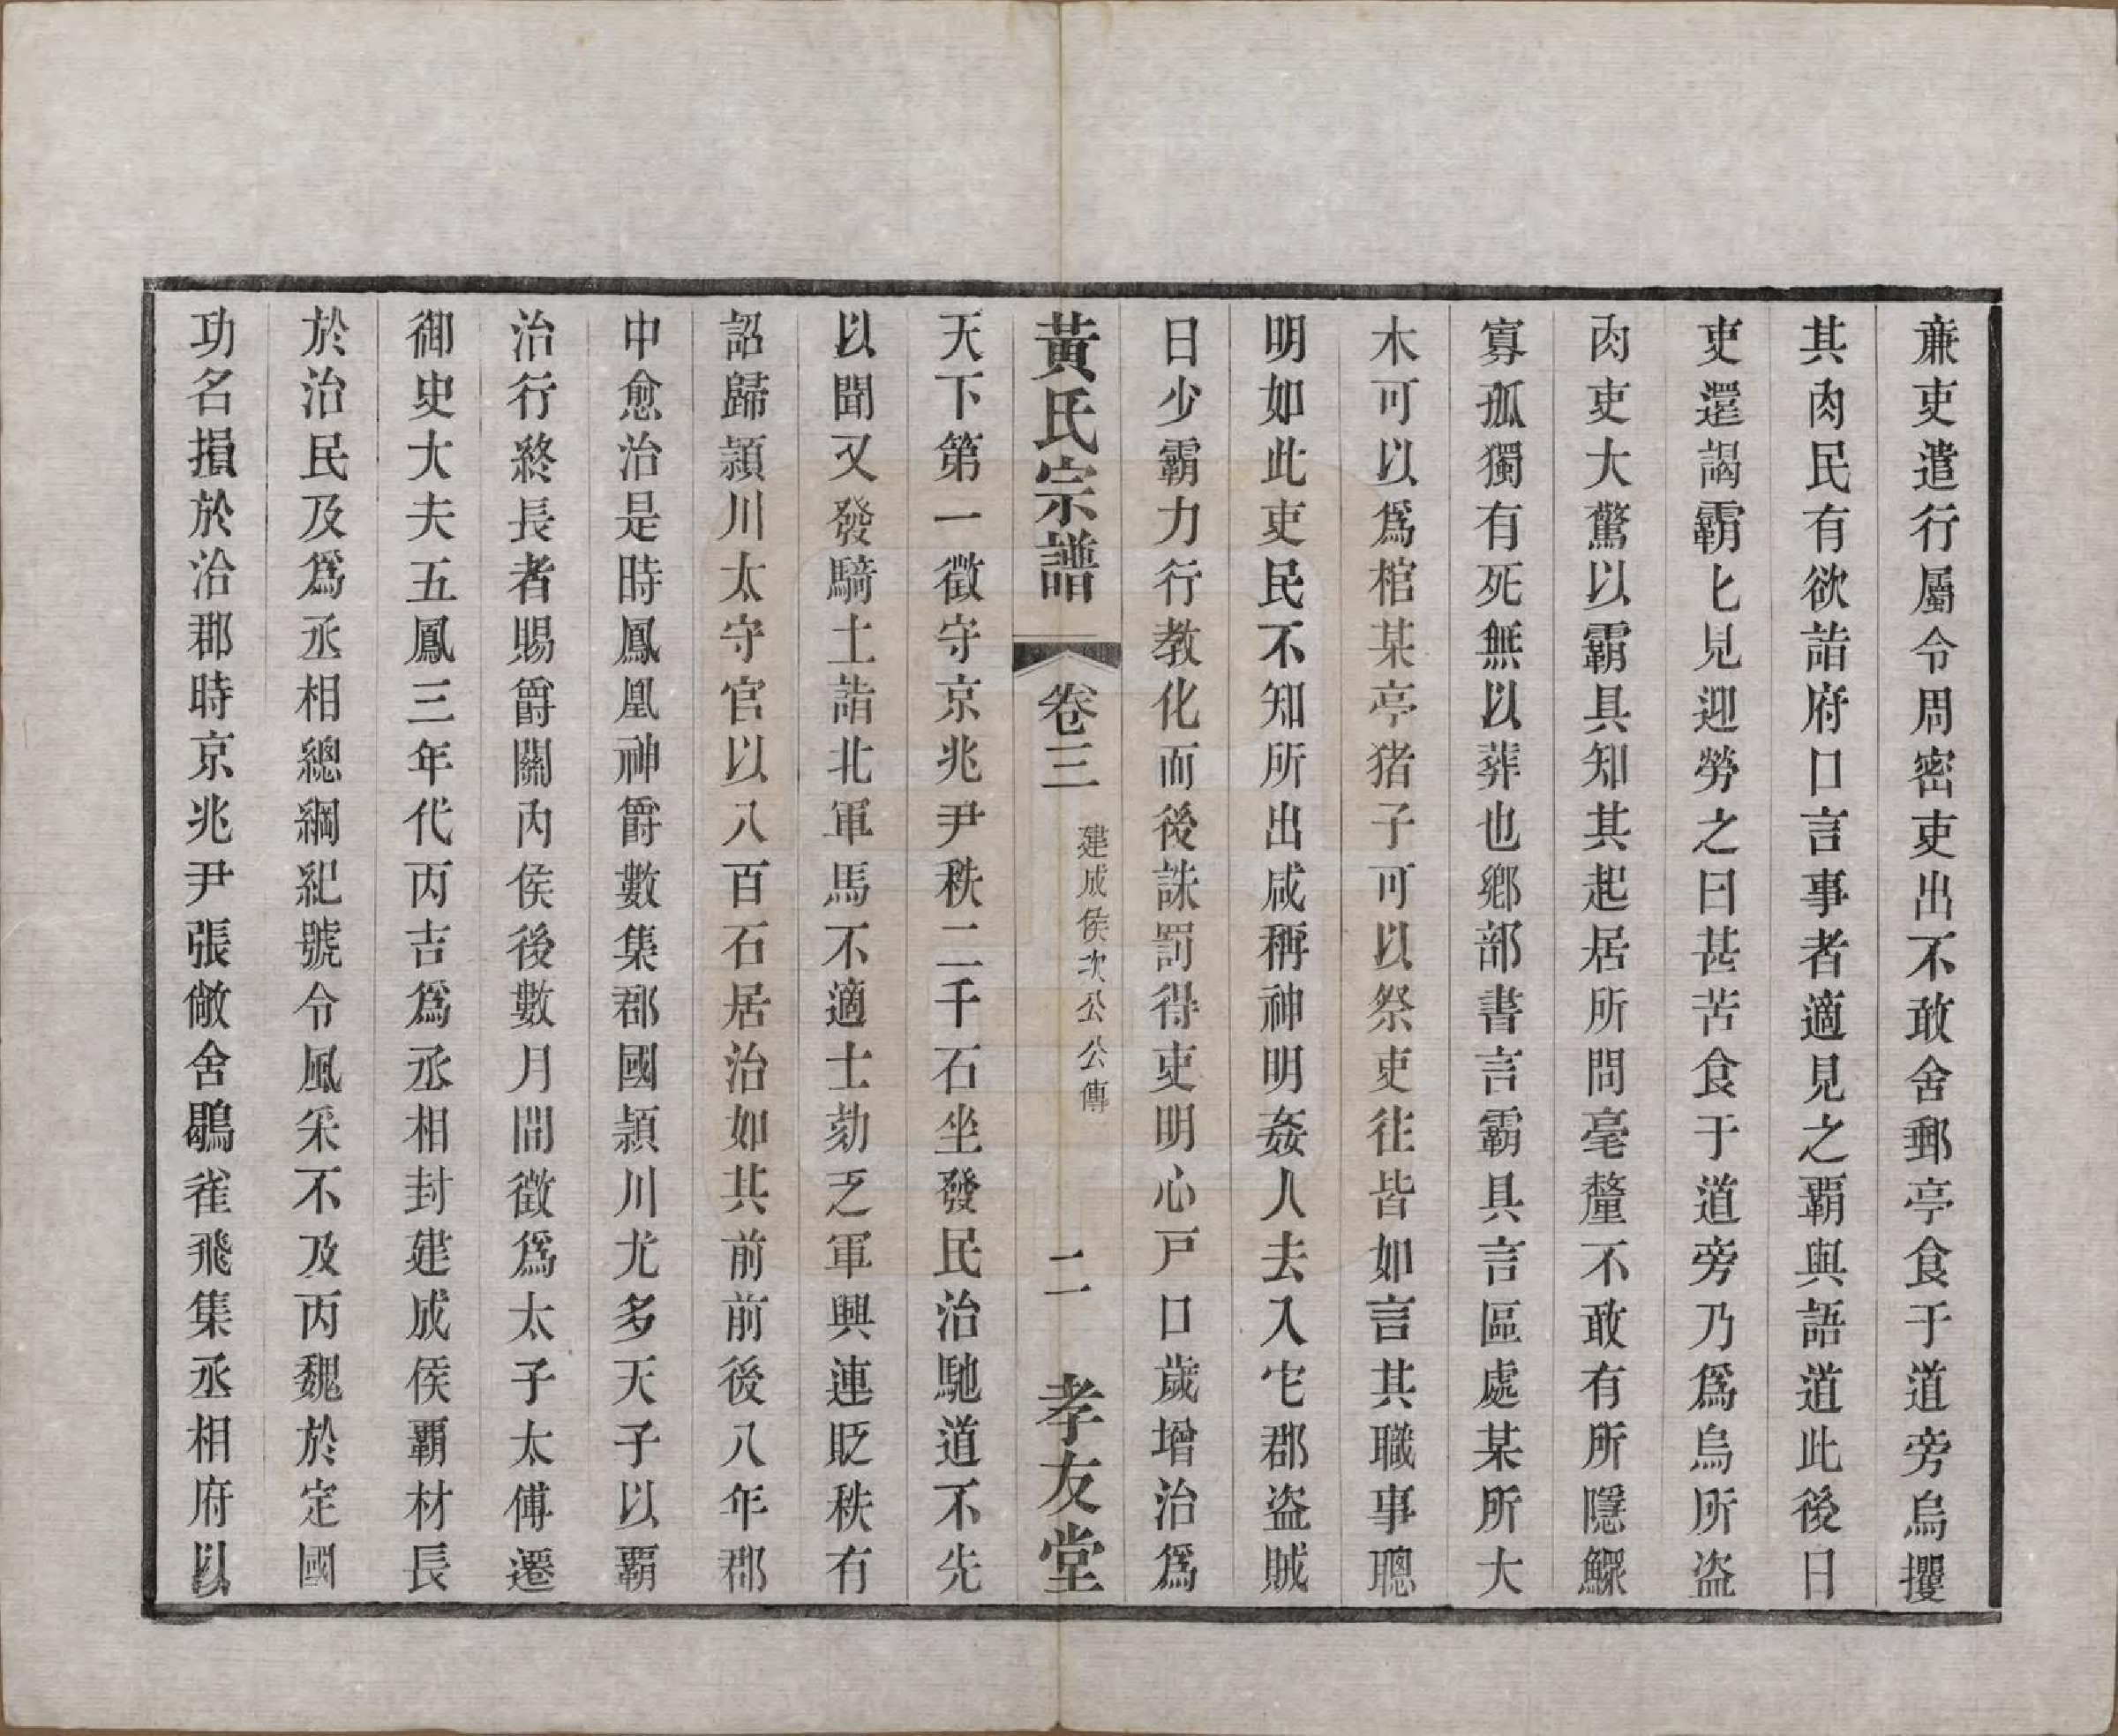 亷吏遣行屬令周密吏出不敢舍郵亭食于道旁烏攫
其肉民有欲詣府口言事者適見之覇與語道此後日
吏還謁霸匕見迎勞之曰甚苦食于道旁乃爲烏所盗
肉吏大驚以霸具知其起居所問毫釐不敢有所隱鰥
寡孤獨有死無以葬也鄉部書言霸具言區處某所大
木可以爲棺某亭猪子可以祭吏往皆如言其職事聰
明如此吏民不知所出咸稱神明姦人去入它郡盗賊
日少霸力行教化而後誅罰得吏明心戸口歲增治爲
黃氏宗譜 卷三 建成侯次公公傳 二 孝友堂
天下第一徵守京兆尹秩二千石坐發民治馳道不先
以聞又發騎士詣北軍馬不適士劾乏軍興連貶秩有
詔歸潁川太守官以八百石居治如其前前後八年郡
中愈治是時鳳凰神爵數集郡國潁川尤多天子以覇
治行終長者賜爵關內侯後數月間徵爲太子太傅遷
御史大夫五鳳三年代丙吉爲丞相封建成侯覇材長
於治民及爲丞相總綱紀號令風采不及丙魏於定國
功名損於治郡時京兆尹張敞舍鶡雀飛集丞相府以